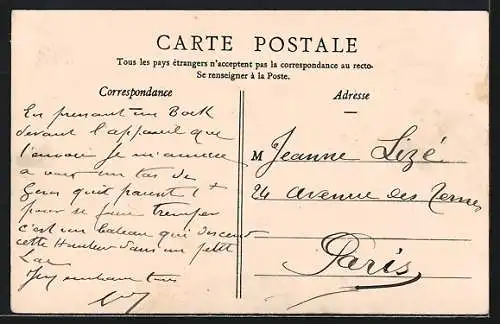 CARTE POSTALE
Tous les pays étrangers n'acceptent pas la correspondance au recto.
Se renseigner à la Poste.
Correspondance
En prenant un Bock
devant l'appareil que
je m'amuse
a voir un tas de
Gens qui paient 1 f
pour se faire tremper
c'est un bateau qui descend
cette Hauteur dans un petit
Lac
Adresse
M Jeanne Lizé
24 avenue des Ternes
Paris